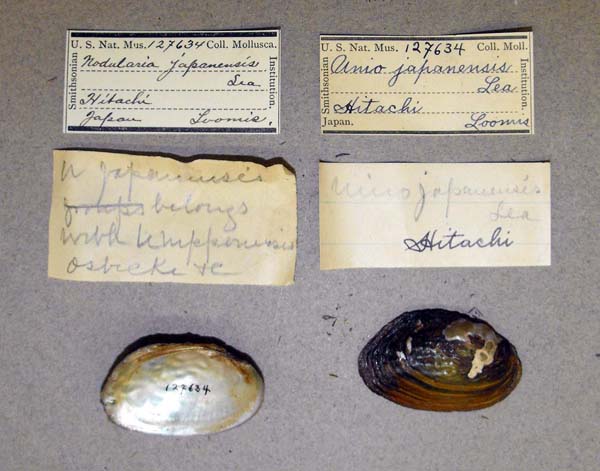 U. S. Nat. Mus. 127634 Coll. Mollusca.
Smithsonian
Nodularia japanensis
Lea
Hitachi
Japan Loomis,
Institution.
U. S. Nat. Mus. 127634 Coll. Moll.
Smithsonian
Unio japanensis
Lea
Hitachi
Japan. Loomis
Institution.
U japanensis
groups belongs
with U nipponensis
&c
Unio japanensis
Lea
Hitachi
127634